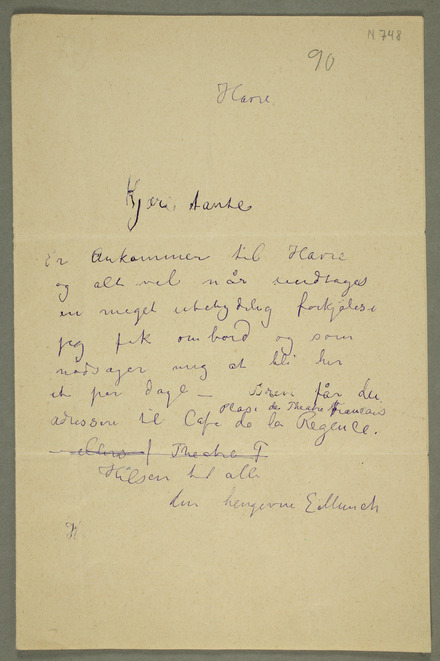 N 748
90
Havre
Kjære tante
Er Ankommen til Havre
og alt vel når undtages
en meget ubetydelig forkjølelse
jeg fik ombord og som
nødsager mig at bli her
et par dage — Breve får du
Plase du Theatre Francais
adressere til Cafe de la Regence.
ellers / Theatre F
Hilsen til alle
din hengivne EdMunch
H